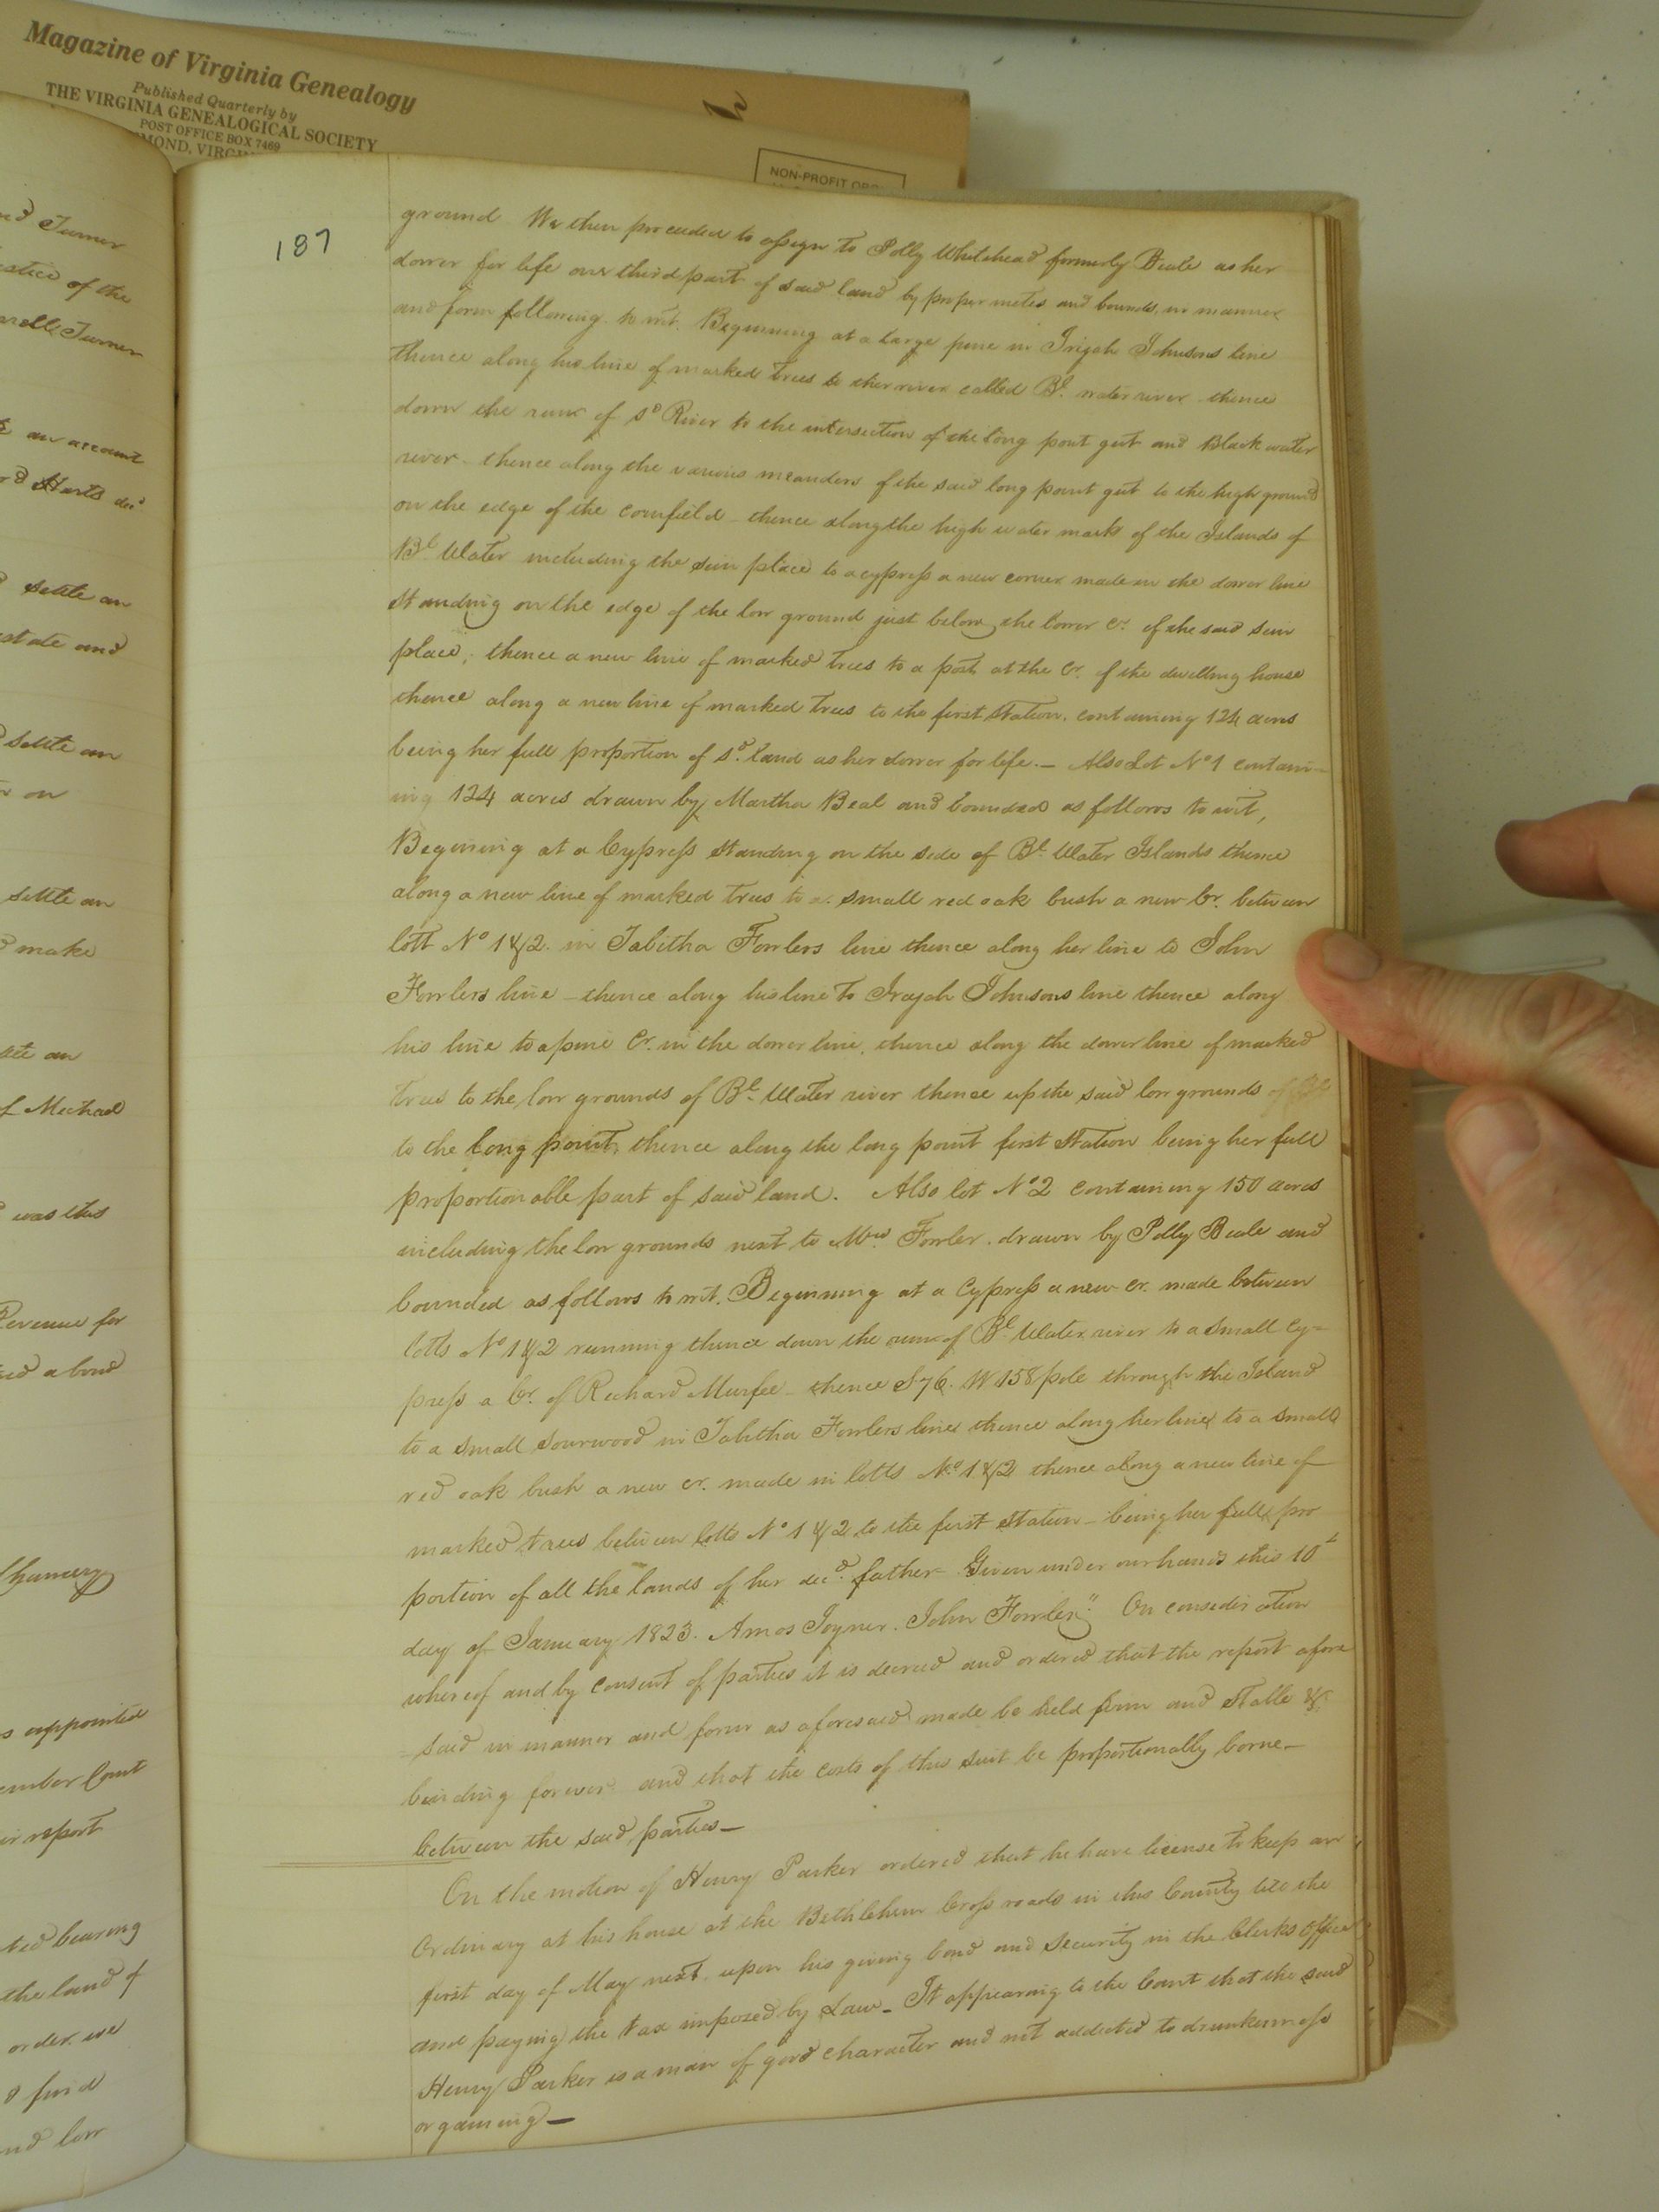 Magazine of Virginia Genealogy
Published Quarterly by
THE VIRGINIA GENEALOGICAL SOCIETY
POST OFFICE BOX 7469
NON-PROFIT ORG
187
ground We then proceeded to assign to Polly Whitehead formerly Beale as her
dower for life one third part of said land by proper metes and bounds, in manner
and form following to wit. Beginning at a large pine in Irijah Johnsons line
thence along his line of marked trees to the river called Bl. water river thence
down the run of sd River to the intersection of the long point gut and Black water
river - thence along the various meanders of the said long point gut to the high ground
on the edge of the cornfield - thence along the high water mark of the Islands of
Bl Water including the sein place to a cypress a new corner made in the dower line
standing on the edge of the low ground just below the lower Cr. of the said sein
place; thence a new line of marked trees to a post at the Cr. of the dwelling house
thence along a new line of marked trees to the first station. containing 124 acres
being her full proportion of sd. land as her dower for life. - Also Lot No 1 contain-
ing 124 acres drawn by Martha Beal and bounded as follows to wit,
Begining at a Cypress standing on the side of Bl. Water Islands thence
along a new line of marked trees to a small red oak bush a new Cr. between
lott No 1 & 2. in Tabitha Fowlers line thence along her line to John
Fowlers line - thence along his line to Irajah Johnsons line thence along
his line to a pine Cr. in the dower line, thence along the dower line of marked
trees to the low grounds of Bl. Water river thence up the said low grounds of
to the long point, thence along the long point first station being her full
proportionable part of said land. Also lot No 2 containing 150 acres
including the low grounds next to Mrs. Fowler. drawn by Polly Beale and
bounded as follows to wit. Beginning at a Cypress a new cr. made between
lotts No 1 & 2 running thence down the run of Bl Water river to a small Cy=
press a Cr. of Richard Murfee - thence S 76. W 158 pole through the Island
to a small sourwood in Tabitha Fowlers line thence along her line to a small
red oak bush a new cr. made in lotts No. 1 & 2 thence along a new line of
marked trees between lotts No 1 & 2 to the first station - being her full pro
portion of all the lands of her decd. father - Given under our hands this 10t
day of January 1823. Amos Joyner. John Fowler." On consideration
whereof and by consent of parties it is decreed and ordered that the report afore
said in manner and form as aforesaid made be held firm and stable &
binding forever and that the costs of this suit be proportionally borne -
between the said parties -
On the motion of Henry Parker ordered that he have license to keep an
Ordinary at his house at the Bethlehem Cross roads in this County till the
first day of May next. upon his giving bond and security in the Clerks Office
and paying the tax imposed by Law - It appearing to the Court that the said
Henry Parker is a man of good character and not addicted to drunkenness
or gaming -
Turner
stice of the
Turner
an account
Harts decd
settle an
state and
settle an
on
settle an
make
an
Michael
was this
Revenue for
a bond
Chancery
appointed
Court
report
bearing
the land of
order we
find
and low